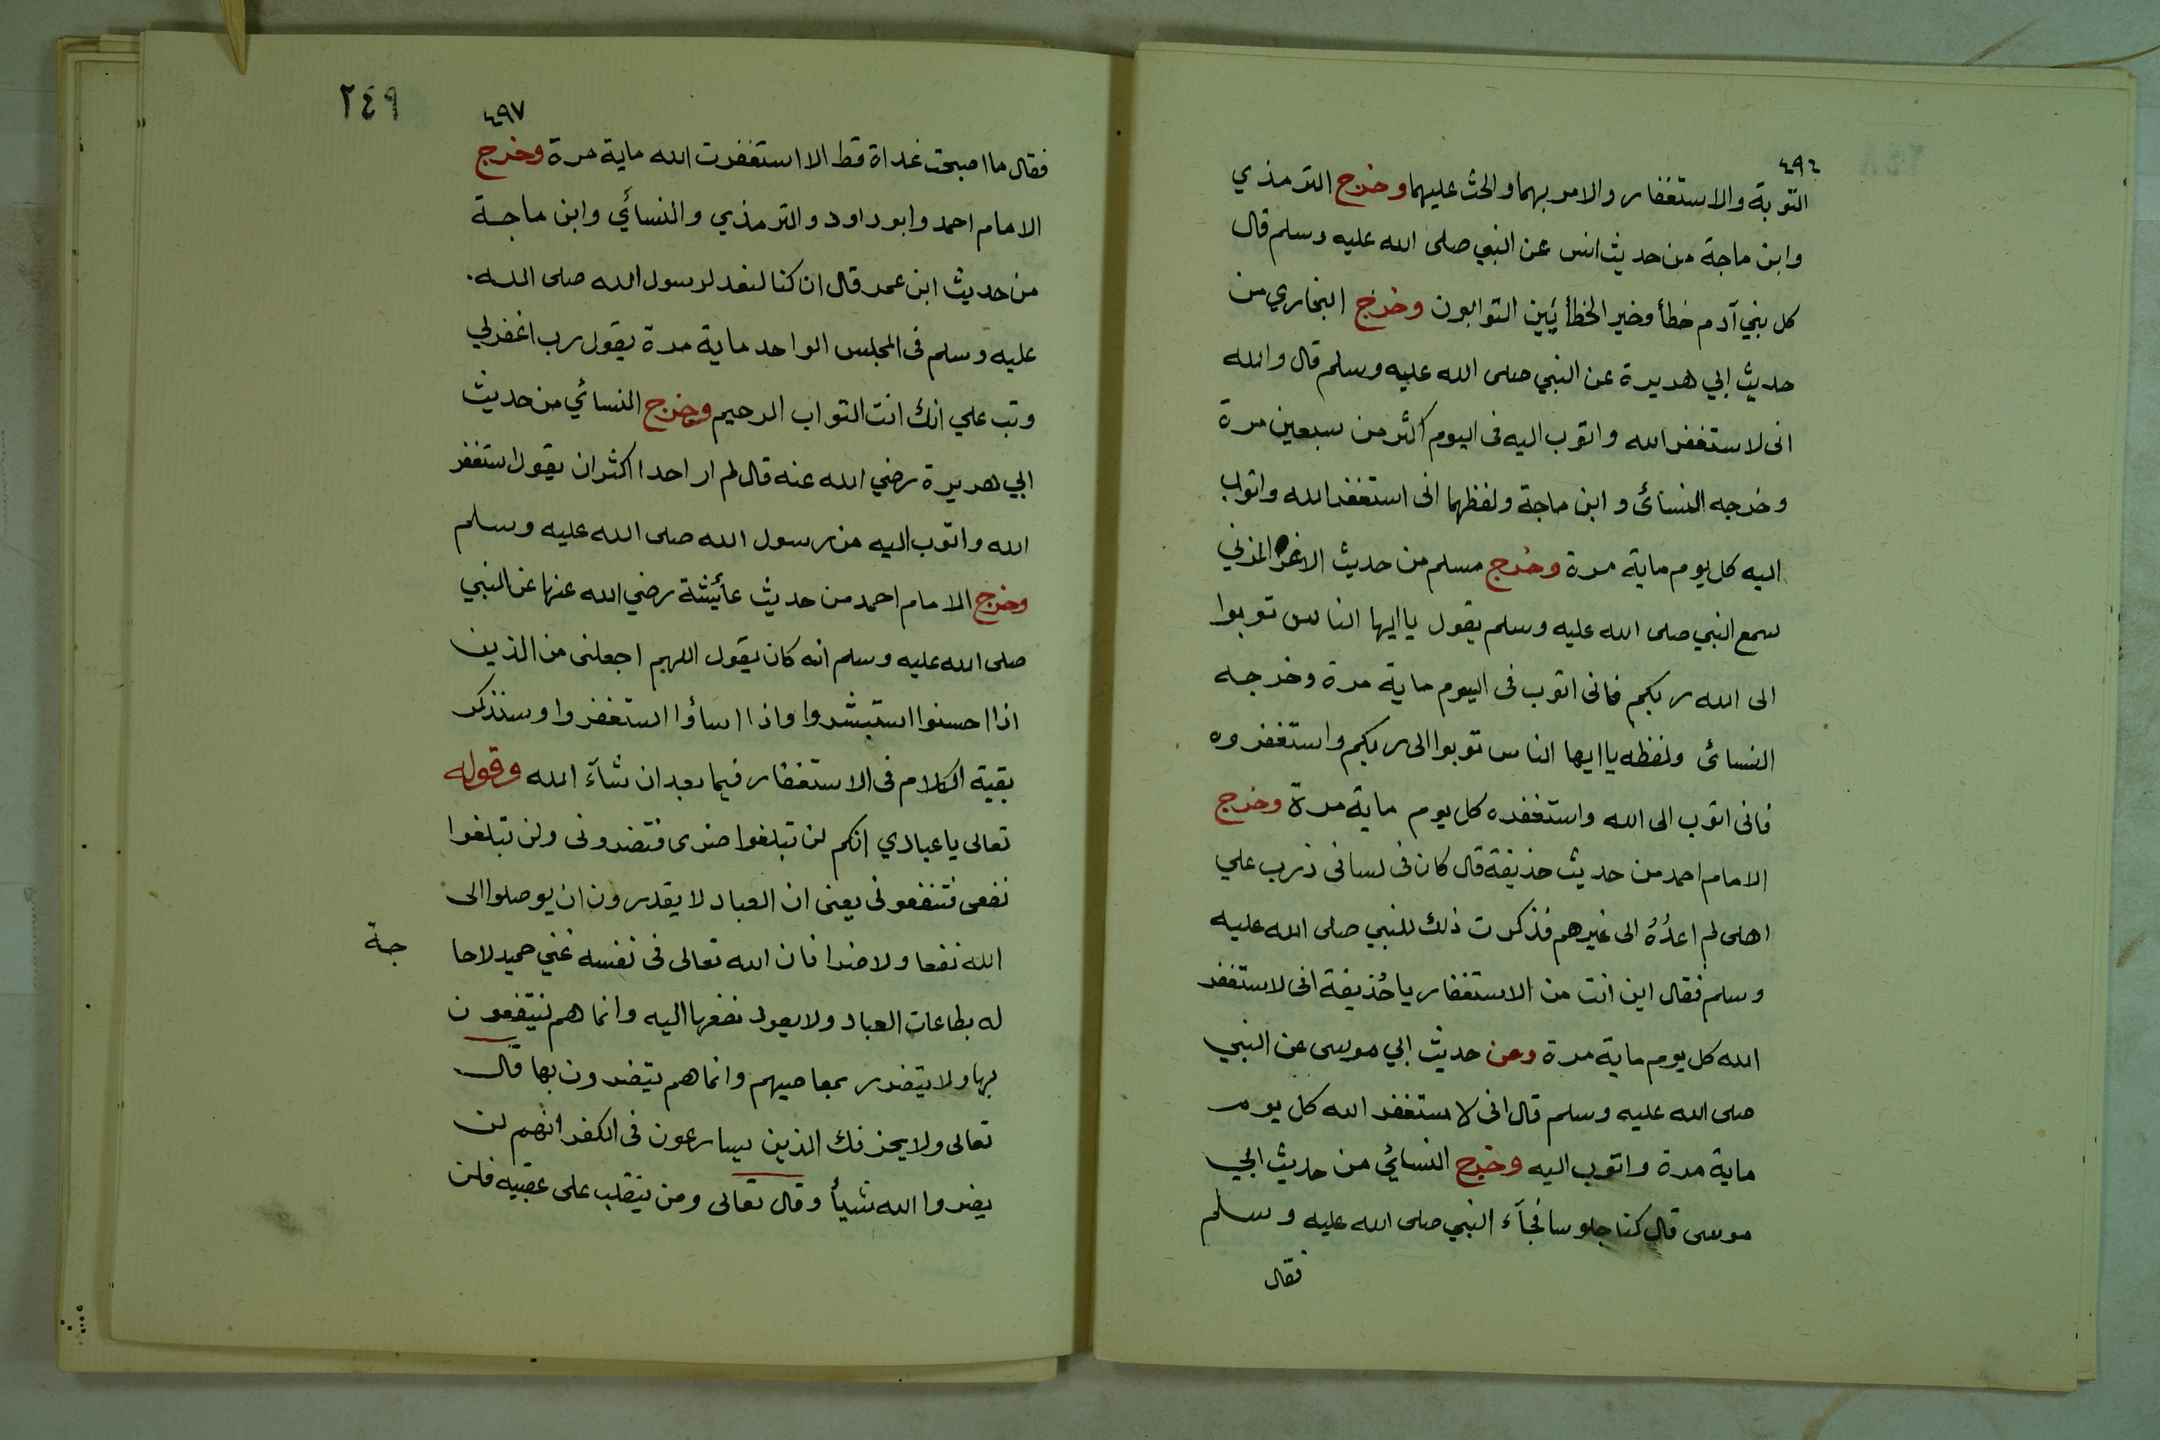 ٤٩٤
التوبة والاستغفار والامر بهما والحث عليهما وخرج الترمذي
وابن ماجة من حديث انس عن النبي صلى الله عليه وسلم قال
كل بني آدم خطأ وخير الخطأيين التوابون وخرج البخاري من
حديث ابي هريرة عن النبي صلى الله عليه وسلم قال والله
انى لاستغفر الله واتوب اليه فى اليوم اكثر من سبعين مرة
وخرجه النسائى وابن ماجة ولفظهما انى استغفر الله واتوب
اليه كل يوم ماية مرة وخرج مسلم من حديث الاغر المزني
سمع النبي صلى الله عليه وسلم يقول يا ايها الناس توبوا
الى الله ربكم فانى اتوب فى اليوم ماية مرة وخرجه
النسائى ولفظه يا ايها الناس توبوا الى ربكم واستغفروه
فانى اتوب الى الله واستغفره كل يوم ماية مرة وخرج
الامام احمد من حديث حذيفة قال كان فى لسانى ذرب علي
اهلى لم اعدُهُ الى غيرهم فذكرت ذلك للنبي صلى الله عليه
وسلم فقال اين انت من الاستغفار يا حُذيفة انى لاستغفر
الله كل يوم ماية مرة وعن حديث ابي موسى عن النبي
صلى الله عليه وسلم قال انى لاستغفر الله كل يوم
ماية مرة واتوب اليه وخرج النسائي من حديث ابي
موسى قال كنا جلوسا فجآء النبي صلى الله عليه وسلم
فقال
٢٤٩
٤٩٧
فقال ما اصبحت غداة قط الا استغفرت الله ماية مرة وخرج
الامام احمد وابو داود والترمذي والنسائي وابن ماجة
من حديث ابن عمر قال ان كنا لنعد لرسول الله صلى الله
عليه وسلم فى المجلس الواحد ماية مرة يقول رب اغفرلي
وتب علي انك انت التواب الرحيم وخرج النسائي من حديث
ابي هريرة رضي الله عنه قال لم ار احدا اكثر ان يقول استغفر
الله واتوب اليه من رسول الله صلى الله عليه وسلم
وخرج الامام احمد من حديث عائيشة رضي الله عنها عن النبي
صلى الله عليه وسلم انه كان يقول اللهم اجعلنى من الذين
اذا احسنوا استبشروا واذا اساؤا استغفروا وسنذكر
بقية الكلام فى الاستغفار فيما بعد ان شآء الله وقوله
تعالى يا عبادي انكم لن تبلغوا ضرى فتضرونى ولن تبلغوا
نفعى فتنفعونى يعنى ان العباد لا يقدرون ان يوصلوا الى
الله نفعا ولا ضرا فان الله تعالى فى نفسه غني حميد لا حا
جة
له بطاعات العباد ولا يعود نفعها اليه وانما هم ينتفعون
بها ولا يتضرر بمعاصيهم وانما هم يتضرون بها قال
تعالى ولا يحزنك الذين يسارعون فى الكفر انهم لن
يضروا الله شيأ وقال تعالى ومن ينقلب على عقبيه فلن